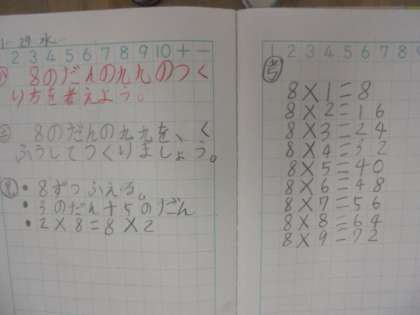 1-29 水
1 2 3 4 5 6 7 8 9 10 + -
8のだんの九九のつく
り方を考えよう。
8のだんの九九を、く
ふうしてつくりましょう。
・8ずつふえる。
・3のだん+5のだん
・2×8=8×2
1 2 3 4 5 6 7 8 9
8×1=8
8×2=16
8×3=24
8×4=32
8×5=40
8×6=48
8×7=56
8×8=64
8×9=72